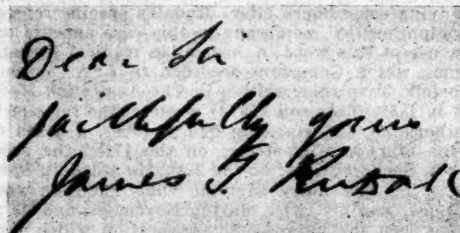 Dear Sir
faithfully yours
James T. Rudall